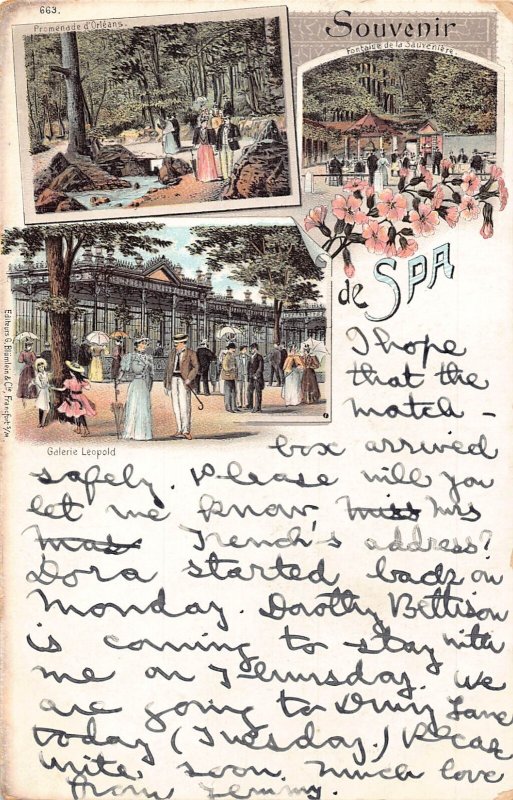 663.
Promenade d'Orléans.
Souvenir
Fontaine de la Sauvenière.
de SPA
Editeurs G. Blümlein & Cie, Francfort s/M
Galerie Leopold
I hope
that the
match -
box arrived
safely. Please will you
let me know Miss Mrs
Trench's address?
Dora started back on
Monday. Dorothy Bettison
is coming to stay with
me on Thursday. We
are going to Drury Lane
today (Tuesday.) Please
write soon. Much love
from Jemmy.